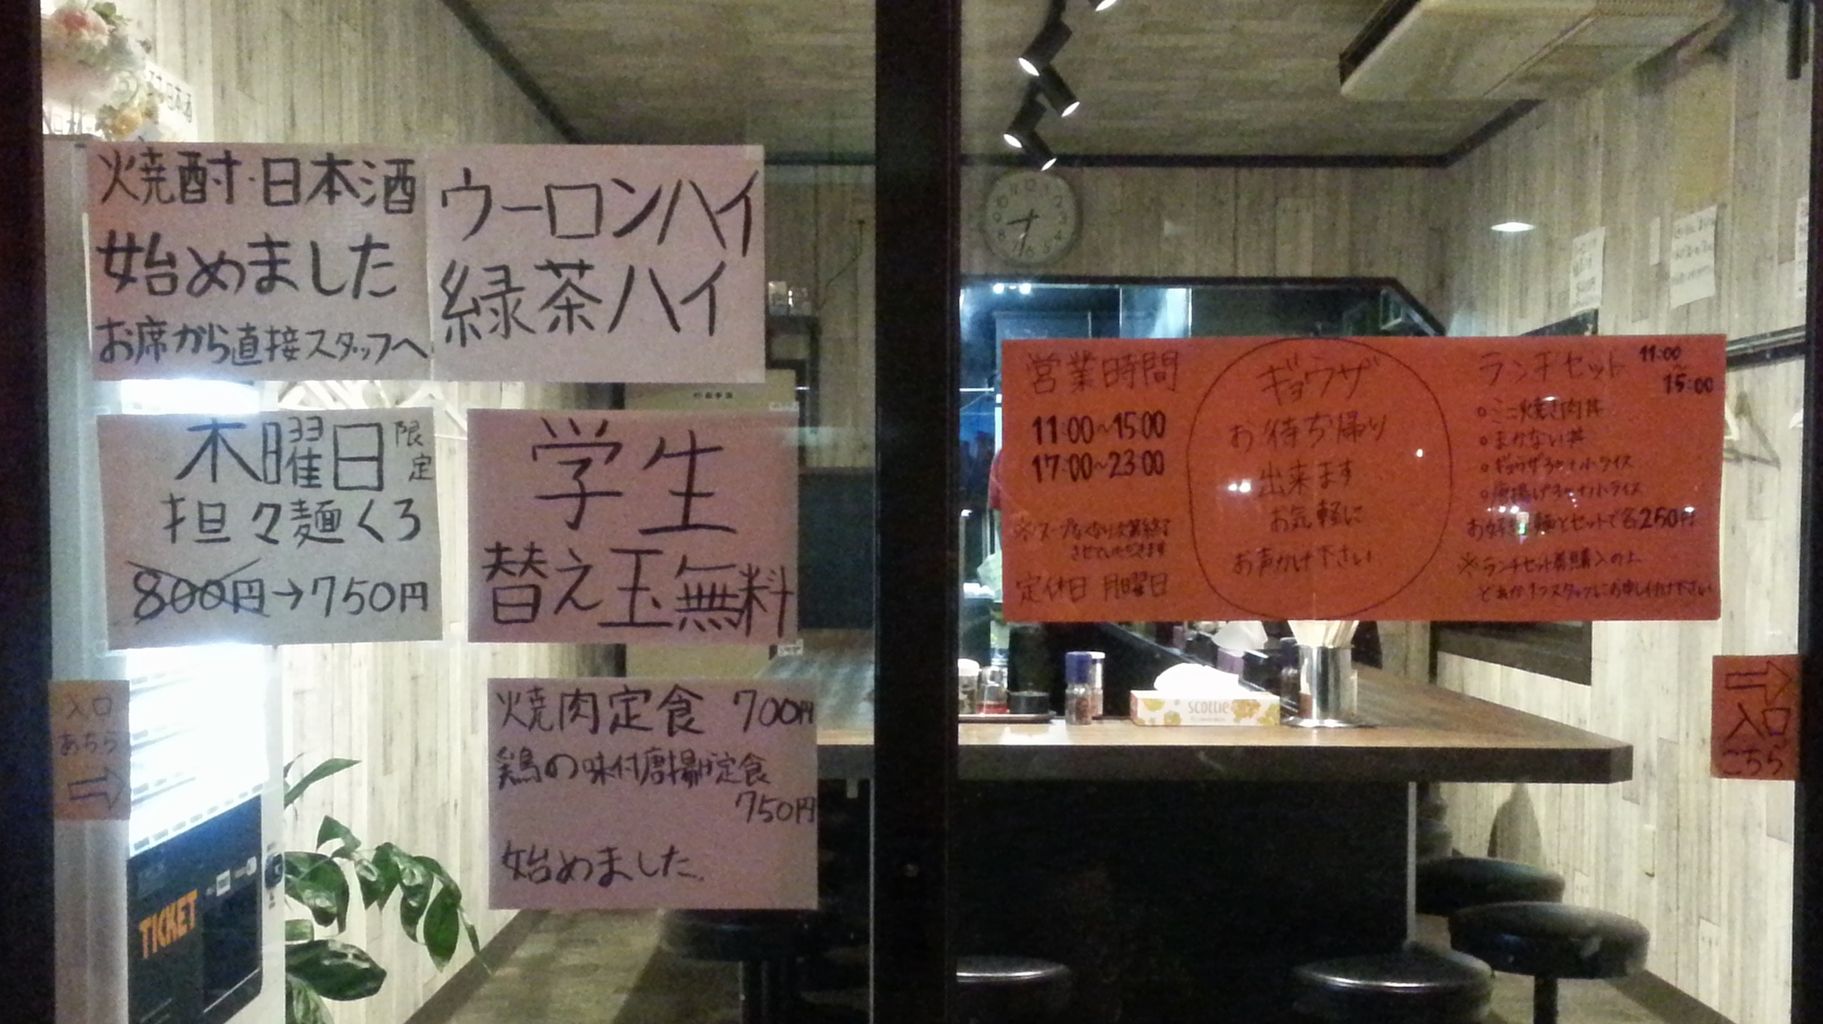 焼酎・日本酒
始めました
お席から直接スタッフへ
ウーロンハイ
緑茶ハイ
木曜日限定
担々麺くろ
800円→750円
学生
替え玉無料
焼肉定食 700円
鶏の味付唐揚げ定食
750円
始めました。
入口
あちら
TICKET
営業時間
11:00~15:00
17:00~23:00
※スープなくなり次第終了
させていただきます
定休日 月曜日
ギョウザ
お待ち帰り
出来ます
お気軽に
お声かけ下さい
ランチセット 11:00
15:00
○ミニ焼き肉丼
○まかない丼
○ギョウザ3ケ+小ライス
○唐揚げ3ケ+小ライス
お好きな麺とセットで各250円
※ランチセット券購入の上
どれか1つスタッフにお申し付け下さい
scottie
入口
こちら